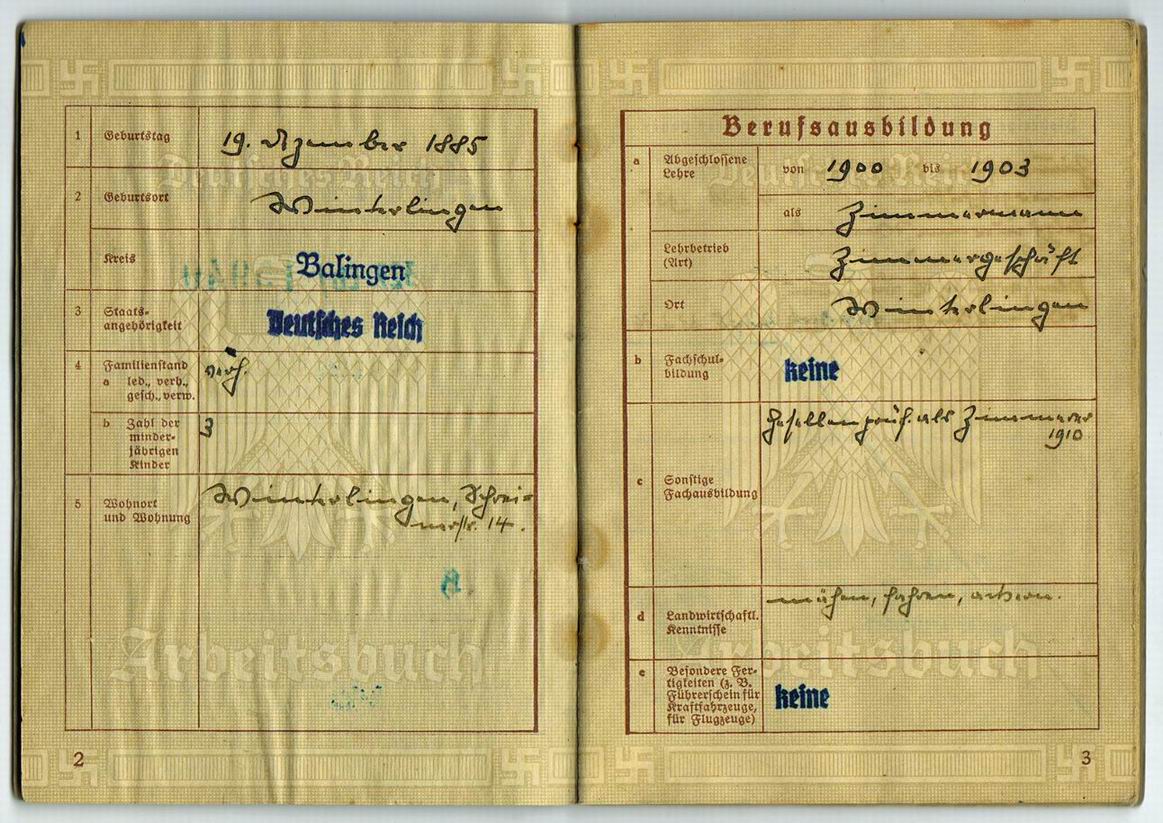 1 Geburtstag 19. Dezember 1885
2 Geburtsort Winterlingen
Kreis Balingen
3 Staats-
angehörigkeit Deutsches Reich
4 Familienstand verh.
a led., verh.,
gesch., verw.
b Zahl der 3
minder-
jährigen
Kinder
5 Wohnort Winterlingen, Schrei-
und Wohnung nerstr. 14.
Arbeitsbuch
2
Berufsausbildung
a Abgeschlossene
Lehre von 1900 bis 1903
als Zimmermann
Lehrbetrieb
(Art) Zimmergeschäft
Ort Winterlingen
b Fachschul-
bildung keine
Gesellenprüf. als Zimmerer
1910
c Sonstige
Fachausbildung
d Landwirtschaftl. mähen, fahren, ackern.
Kenntnisse
e Besondere Fer-
tigkeiten (z. B.
Führerschein für
Kraftfahrzeuge,
für Flugzeuge) keine
Deutsches Reich
Arbeitsbuch
3